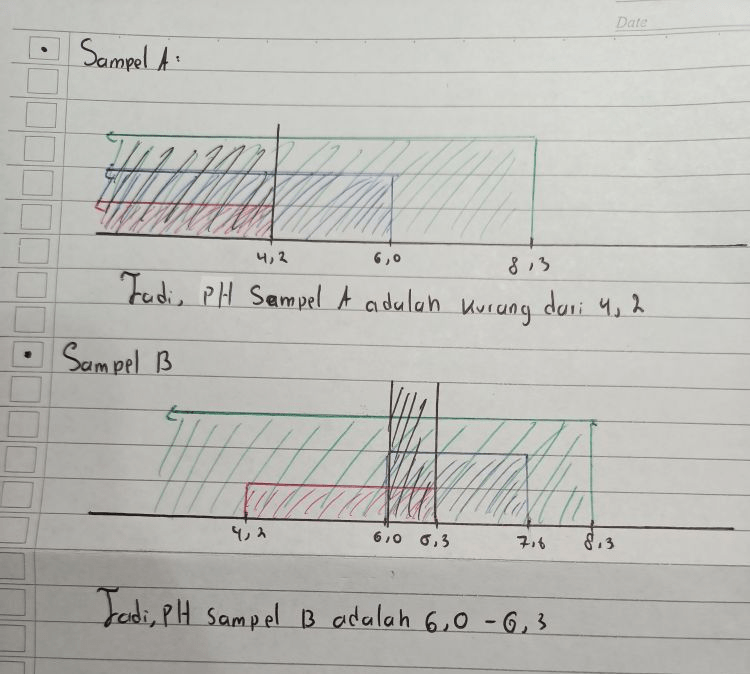 Date
Sampel A:
4,2 6,0 8,3
Jadi, PH Sampel A adalah kurang dari 4,2
Sampel B
4,2 6,0 6,3 7,6 8,3
Jadi, PH sampel B adalah 6,0 - 6,3